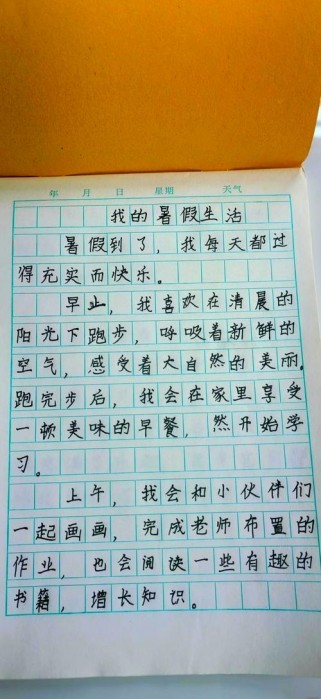 年 月 日 星期 天气
我的暑假生活
暑假到了，我每天都过
得充实而快乐。
早上，我喜欢在清晨的
阳光下跑步，呼吸着新鲜的
空气，感受着大自然的美丽。
跑完步后，我会在家里享受
一顿美味的早餐，然开始学
习。
上午，我会和小伙伴们
一起画画，完成老师布置的
作业，也会阅读一些有趣的
书籍，增长知识。